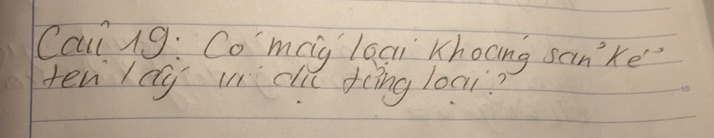 Câu 19: Có mấy loại khoáng sản? Kể
tên lấy ví dụ từng loại?